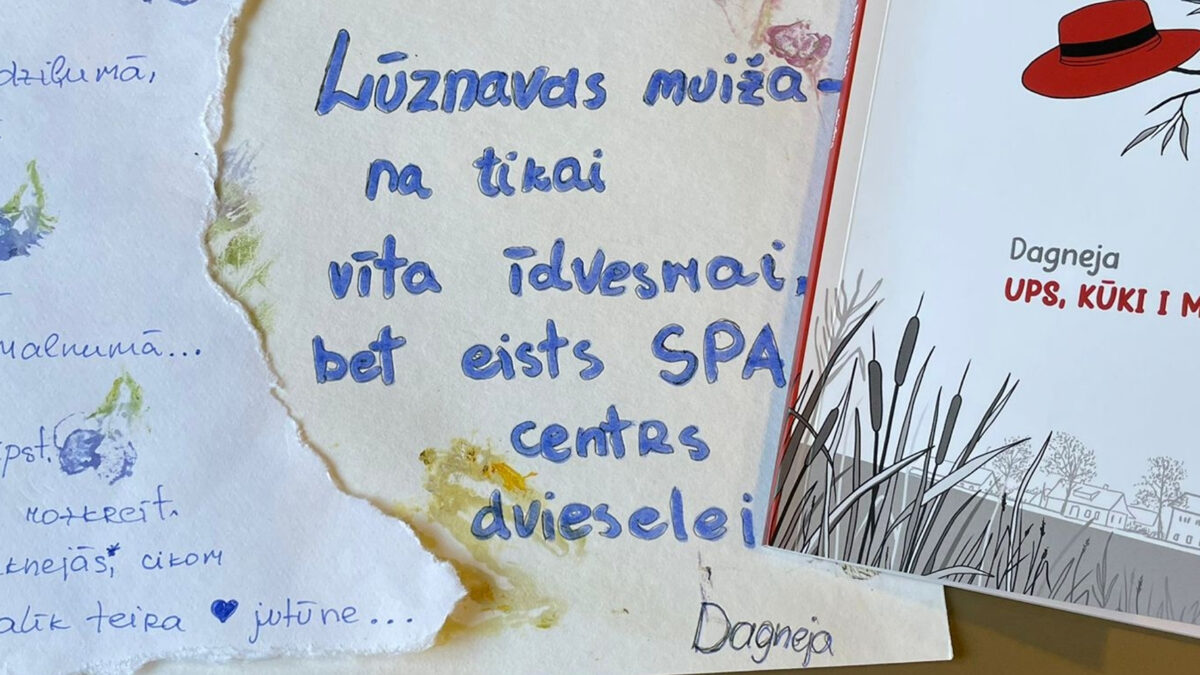 dziļumā,
malnumā...
pst.
rozkreit.
knejās*, cikom
alīk teira ♥ jutūne...
Lūznavas muiža-
na tikai
vīta īdvesmai,
bet eists SPA
centrs
dvieselei
Dagneja
Dagneja
UPS, KŪKI I M